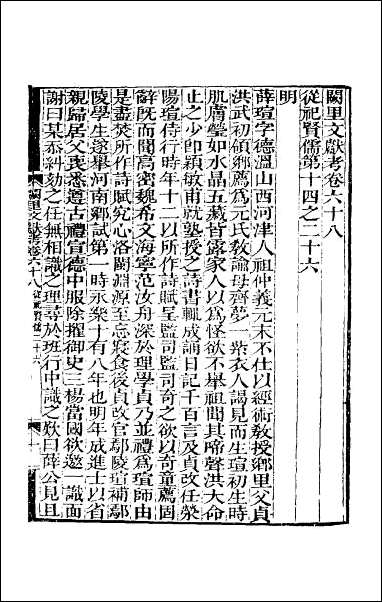 闕里文獻考卷六十八
從祀賢儒第十四之二十六
明
薛瑄字德溫山西河津人祖仲義元末不仕以經術敎授鄉里父貞
洪武初領鄉薦爲元氏敎諭母齊夢一紫衣人謁見而生瑄初生時
肌膚瑩如水晶五藏皆露家人以爲怪欲不舉祖聞其啼聲洪大命
止之少卽穎敏甫就塾授之詩書輒成誦日記千百言及貞改任滎
陽瑄侍行時年十二以所作詩賦呈監司監司奇之欲以奇童薦固
辭旣而聞高密魏希文海寧范汝舟深於理學貞乃並禮爲瑄師由
是盡焚所作詩賦究心洛閩淵源至忘寢食後貞改官鄢陵瑄補鄢
陵學生遂舉河南鄉試第一時永樂十有八年也明年成進士以省
親歸居父喪悉遵古禮宣德中服除擢御史三楊當國欲邀一識面
謝曰某忝糾劾之任無相識之理尋於班行中識之歎曰薛公見且
闕里文獻考卷六十八 從祀賢儒二十六 一